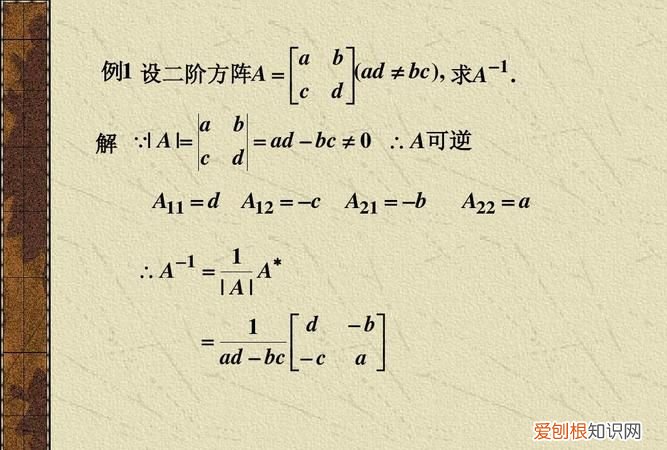 例1 设二阶方阵A = [a b; c d] (ad ≠ bc), 求A⁻¹.
解 ∵|A|= |a b; c d| = ad − bc ≠ 0 ∴ A可逆
A₁₁ = d A₁₂ = −c A₂₁ = −b A₂₂ = a
∴ A⁻¹ = 1/|A| A*
= 1/(ad − bc) [d −b; −c a]
爱刨根知识网